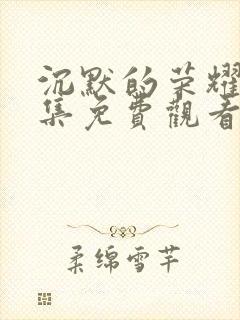 沉默的荣耀
集免費觀看
柔绵雪芊